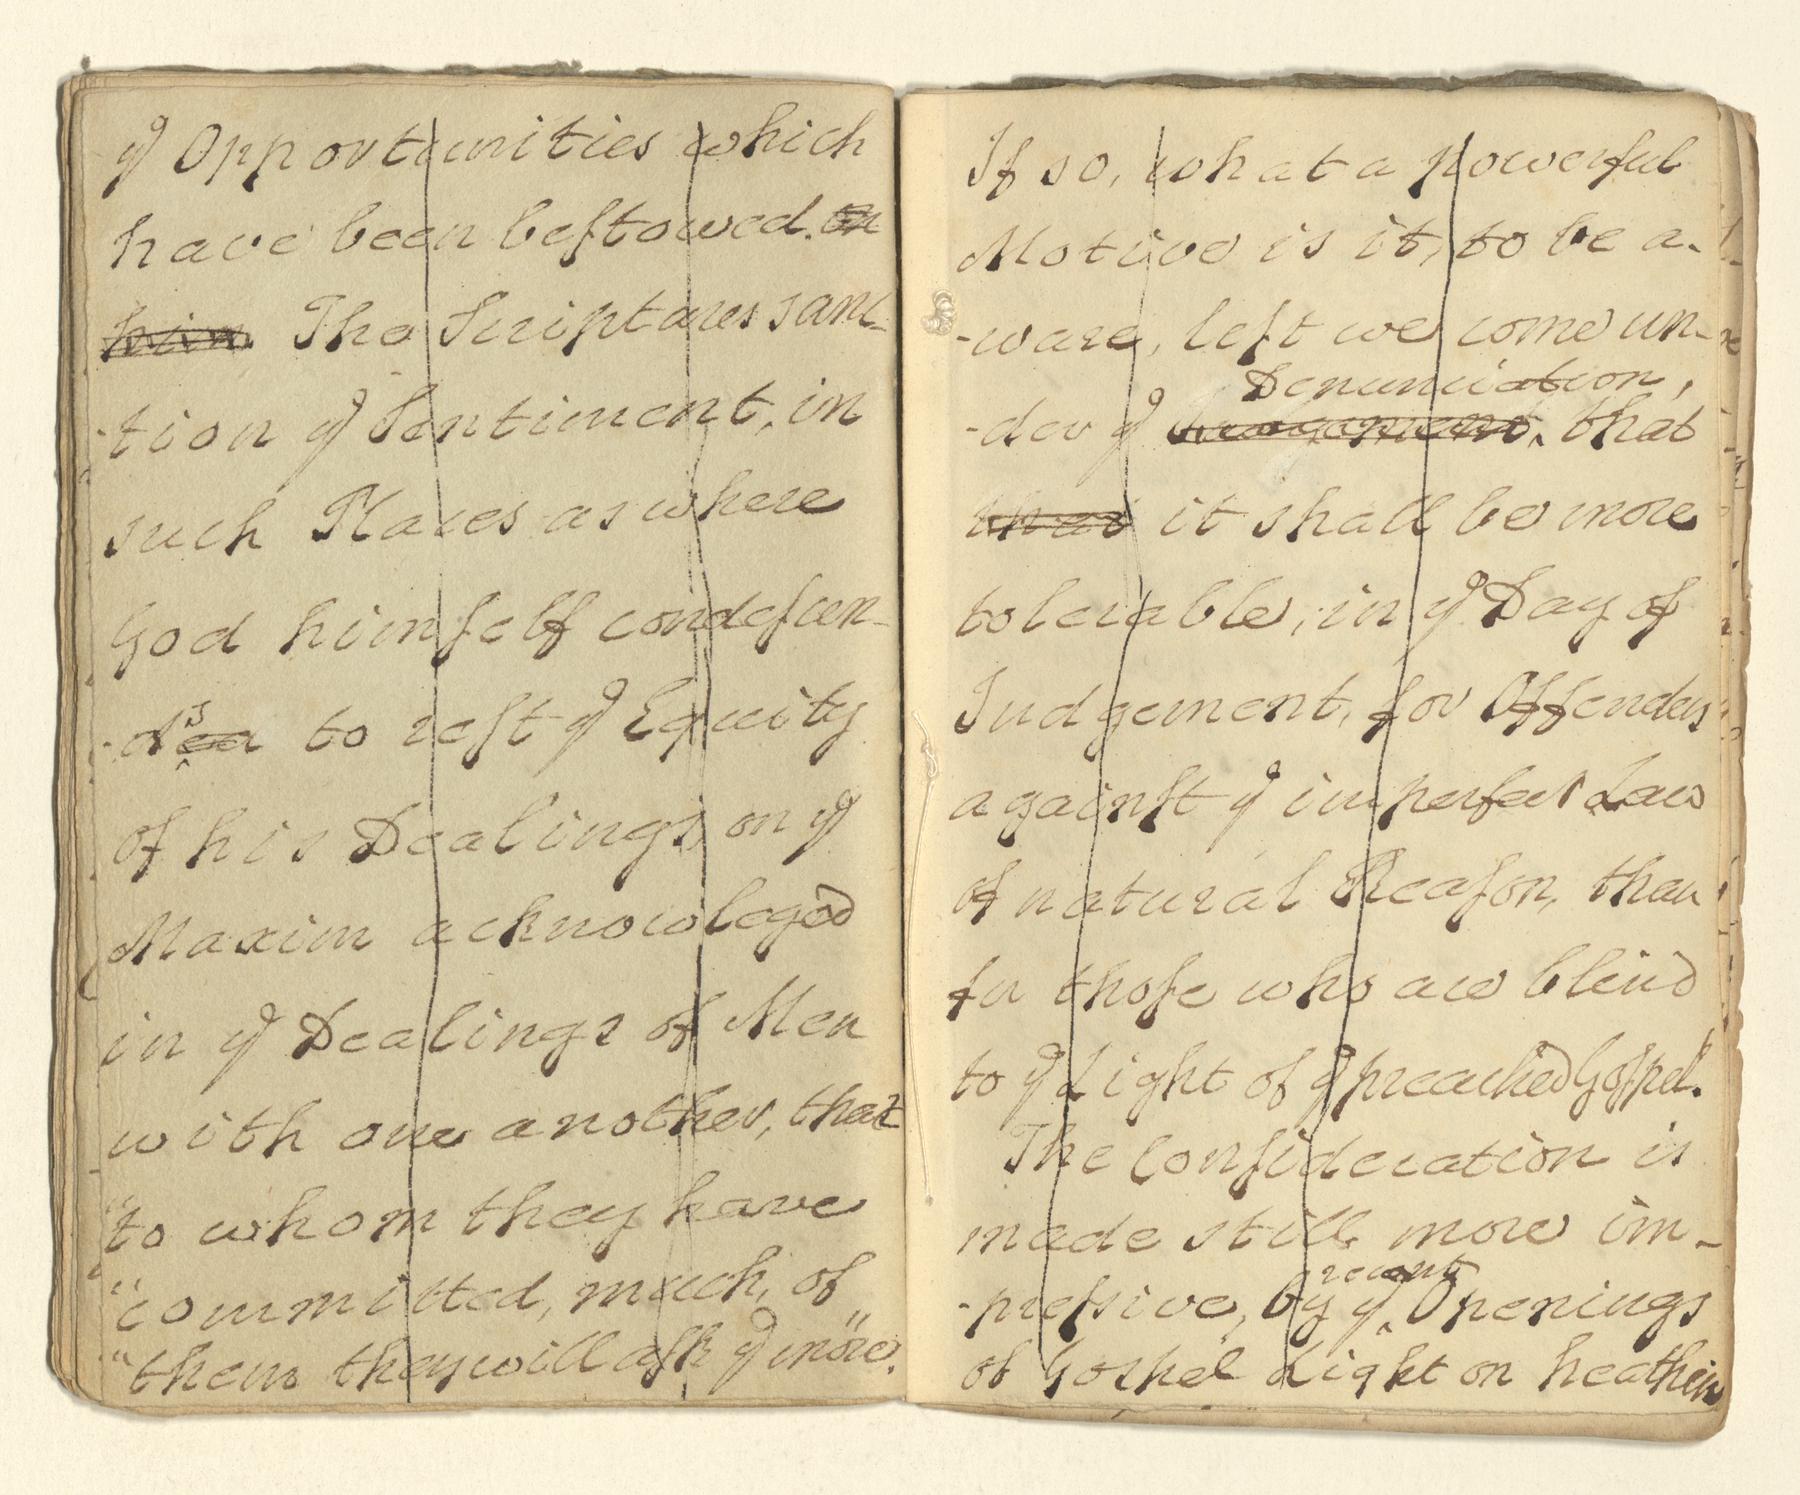 ye Opportunities which
have been bestowed. on
him. The Scriptures sanc-
-tion ye Sentiment, in
such Places as where
God himself condescen-
-ds to rest ye Equity
of his Dealings, on ye
Maxim acknowleged
in ye Dealings of Men
with one another, that
"to whom they have
"committed, much, of
"them they will ask ye more."
If so, what a powerful
Motive is it, to be a-
-ware, lest we come un-
Denunciation,
-der ye that
that it shall be more
tolerable, in ye Day of
Judgement, for Offenders
against ye imperfect Law
of natural Reason, than
for those who are blind
to ye Light of ye preached Gospel.
The Consideration is
made still more im-
recent
-pressive, by ye Openings
of Gospel Light on heathen